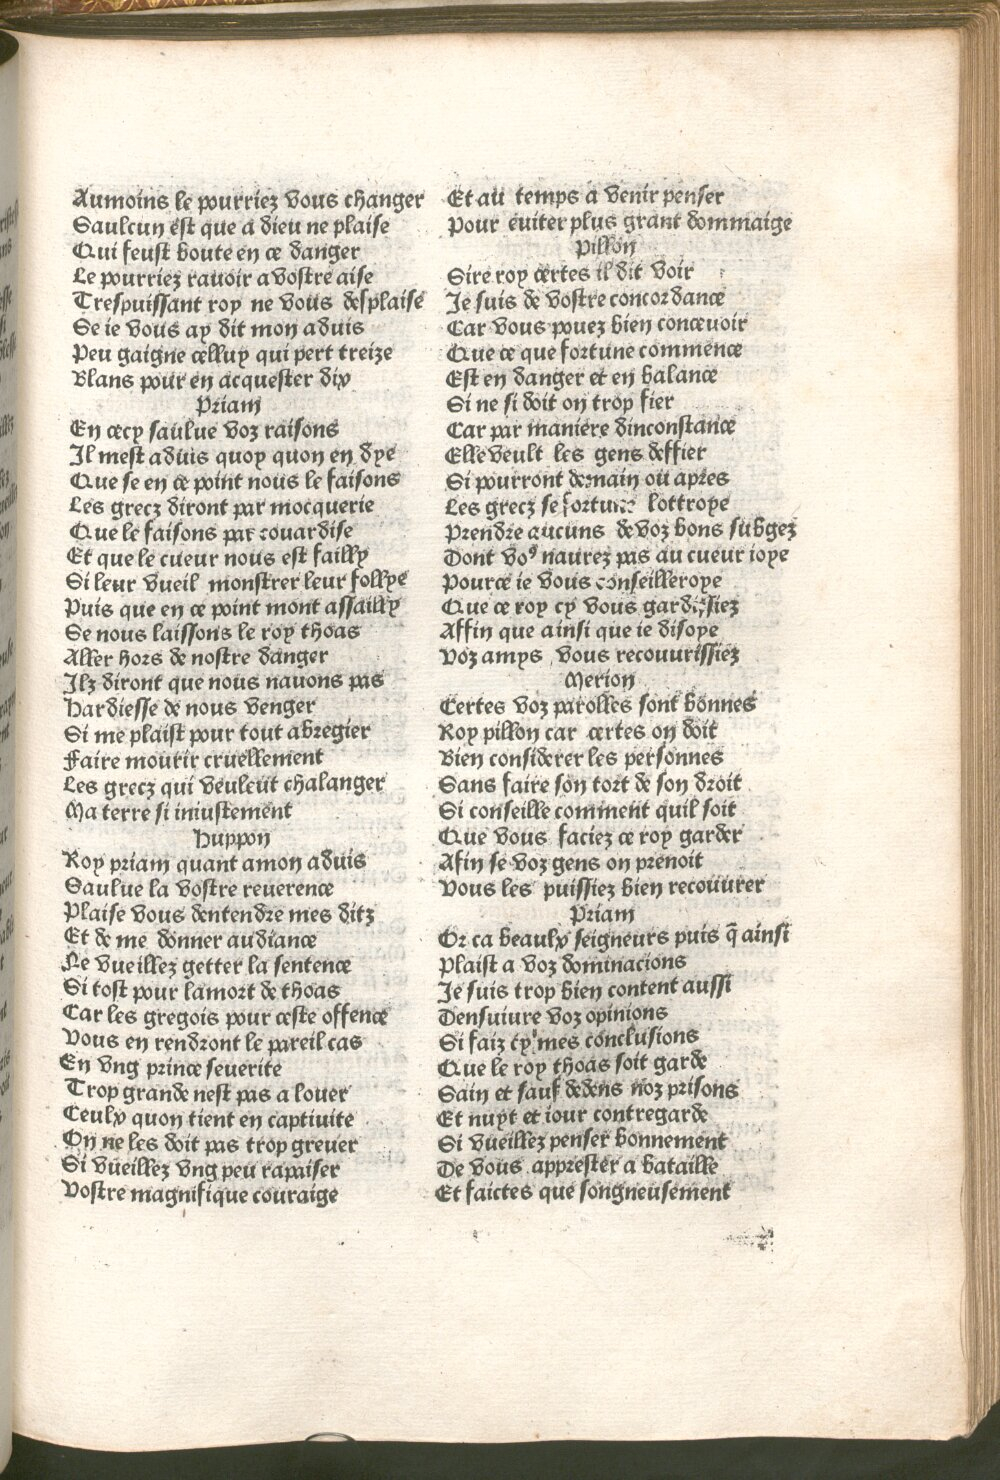 Aumoins le pourriez vous changer
Saulcun est que a dieu ne plaise
Qui feust boute en ce danger
Le pourriez rauoir a vostre aise
Trespuissant roy ne vous desplaise
Se ie vous ay dit mon aduis
Peu gaigne celluy qui pert treize
Blans pour en acquester dix
Priam
En cecy saulue voz raisons
Il mest aduis quoy quon en dye
Que se en ce point nous le faisons
Les grecz diront par mocquerie
Que le faisons par couardise
Et que le cueur nous est failly
Si leur vueil monstrer leur follye
Puis que en ce point mont assailly
Se nous laissons le roy thoas
Aller hors de nostre danger
Ilz diront que nous nauons pas
Hardiesse de nous venger
Si me plaist pour tout abregier
Faire mourir cruellement
Les grecz qui veuleut chalanger
Ma terre si iniustement
Huppon
Roy priam quant amon aduis
Saulue la vostre reuerence
Plaise vous dentendre mes ditz
Et de me donner audiance
Ne vueillez getter la sentence
Si tost pour lamort de thoas
Car les gregois pour ceste offence
Vous en rendront le pareil cas
En vng prince seuerite
Trop grande nest pas a louer
Ceulx quon tient en captiuite
On ne les doit pas trop greuer
Si vueillez vng peu rapaiser
Vostre magnifique couraige
Et au temps a venir penser
Pour euiter plus grant dommaige
Pillon
Sire roy certes il dit voir
Je suis de vostre concordance
Car vous pouez bien conceuoir
Que ce que fortune commence
Est en danger et en balance
Si ne si doit on trop fier
Car par maniere dinconstance
Elle veult les gens deffier
Si pourront demain ou apres
Les grecz se fortune lottroye
Prendre aucuns de voz bons subgez
Dont voꝰ naurez pas au cueur ioye
Pource ie vous conseilleroye
Que ce roy cy vous gardissiez
Affin que ainsi que ie disoye
Voz amys vous recouurissiez
Merion
Certes voz parolles sont bonnes
Roy pillon car certes on doit
Bien considerer les personnes
Sans faire son tort de son droit
Si conseille comment quil soit
Que vous faciez ce roy garder
Afin se voz gens on prenoit
Vous les puissiez bien recouurer
Priam
Or ca beaulx seigneurs puis q̄ ainsi
Plaist a voz dominacions
Je suis trop bien content aussi
Densuiure voz opinions
Si faiz cy mes conclusions
Que le roy thoas soit garde
Sain et sauf dedens noz prisons
Et nuyt et iour contregarde
Si vueillez penser bonnement
De vous apprester a bataille
Et faictes que songneusement